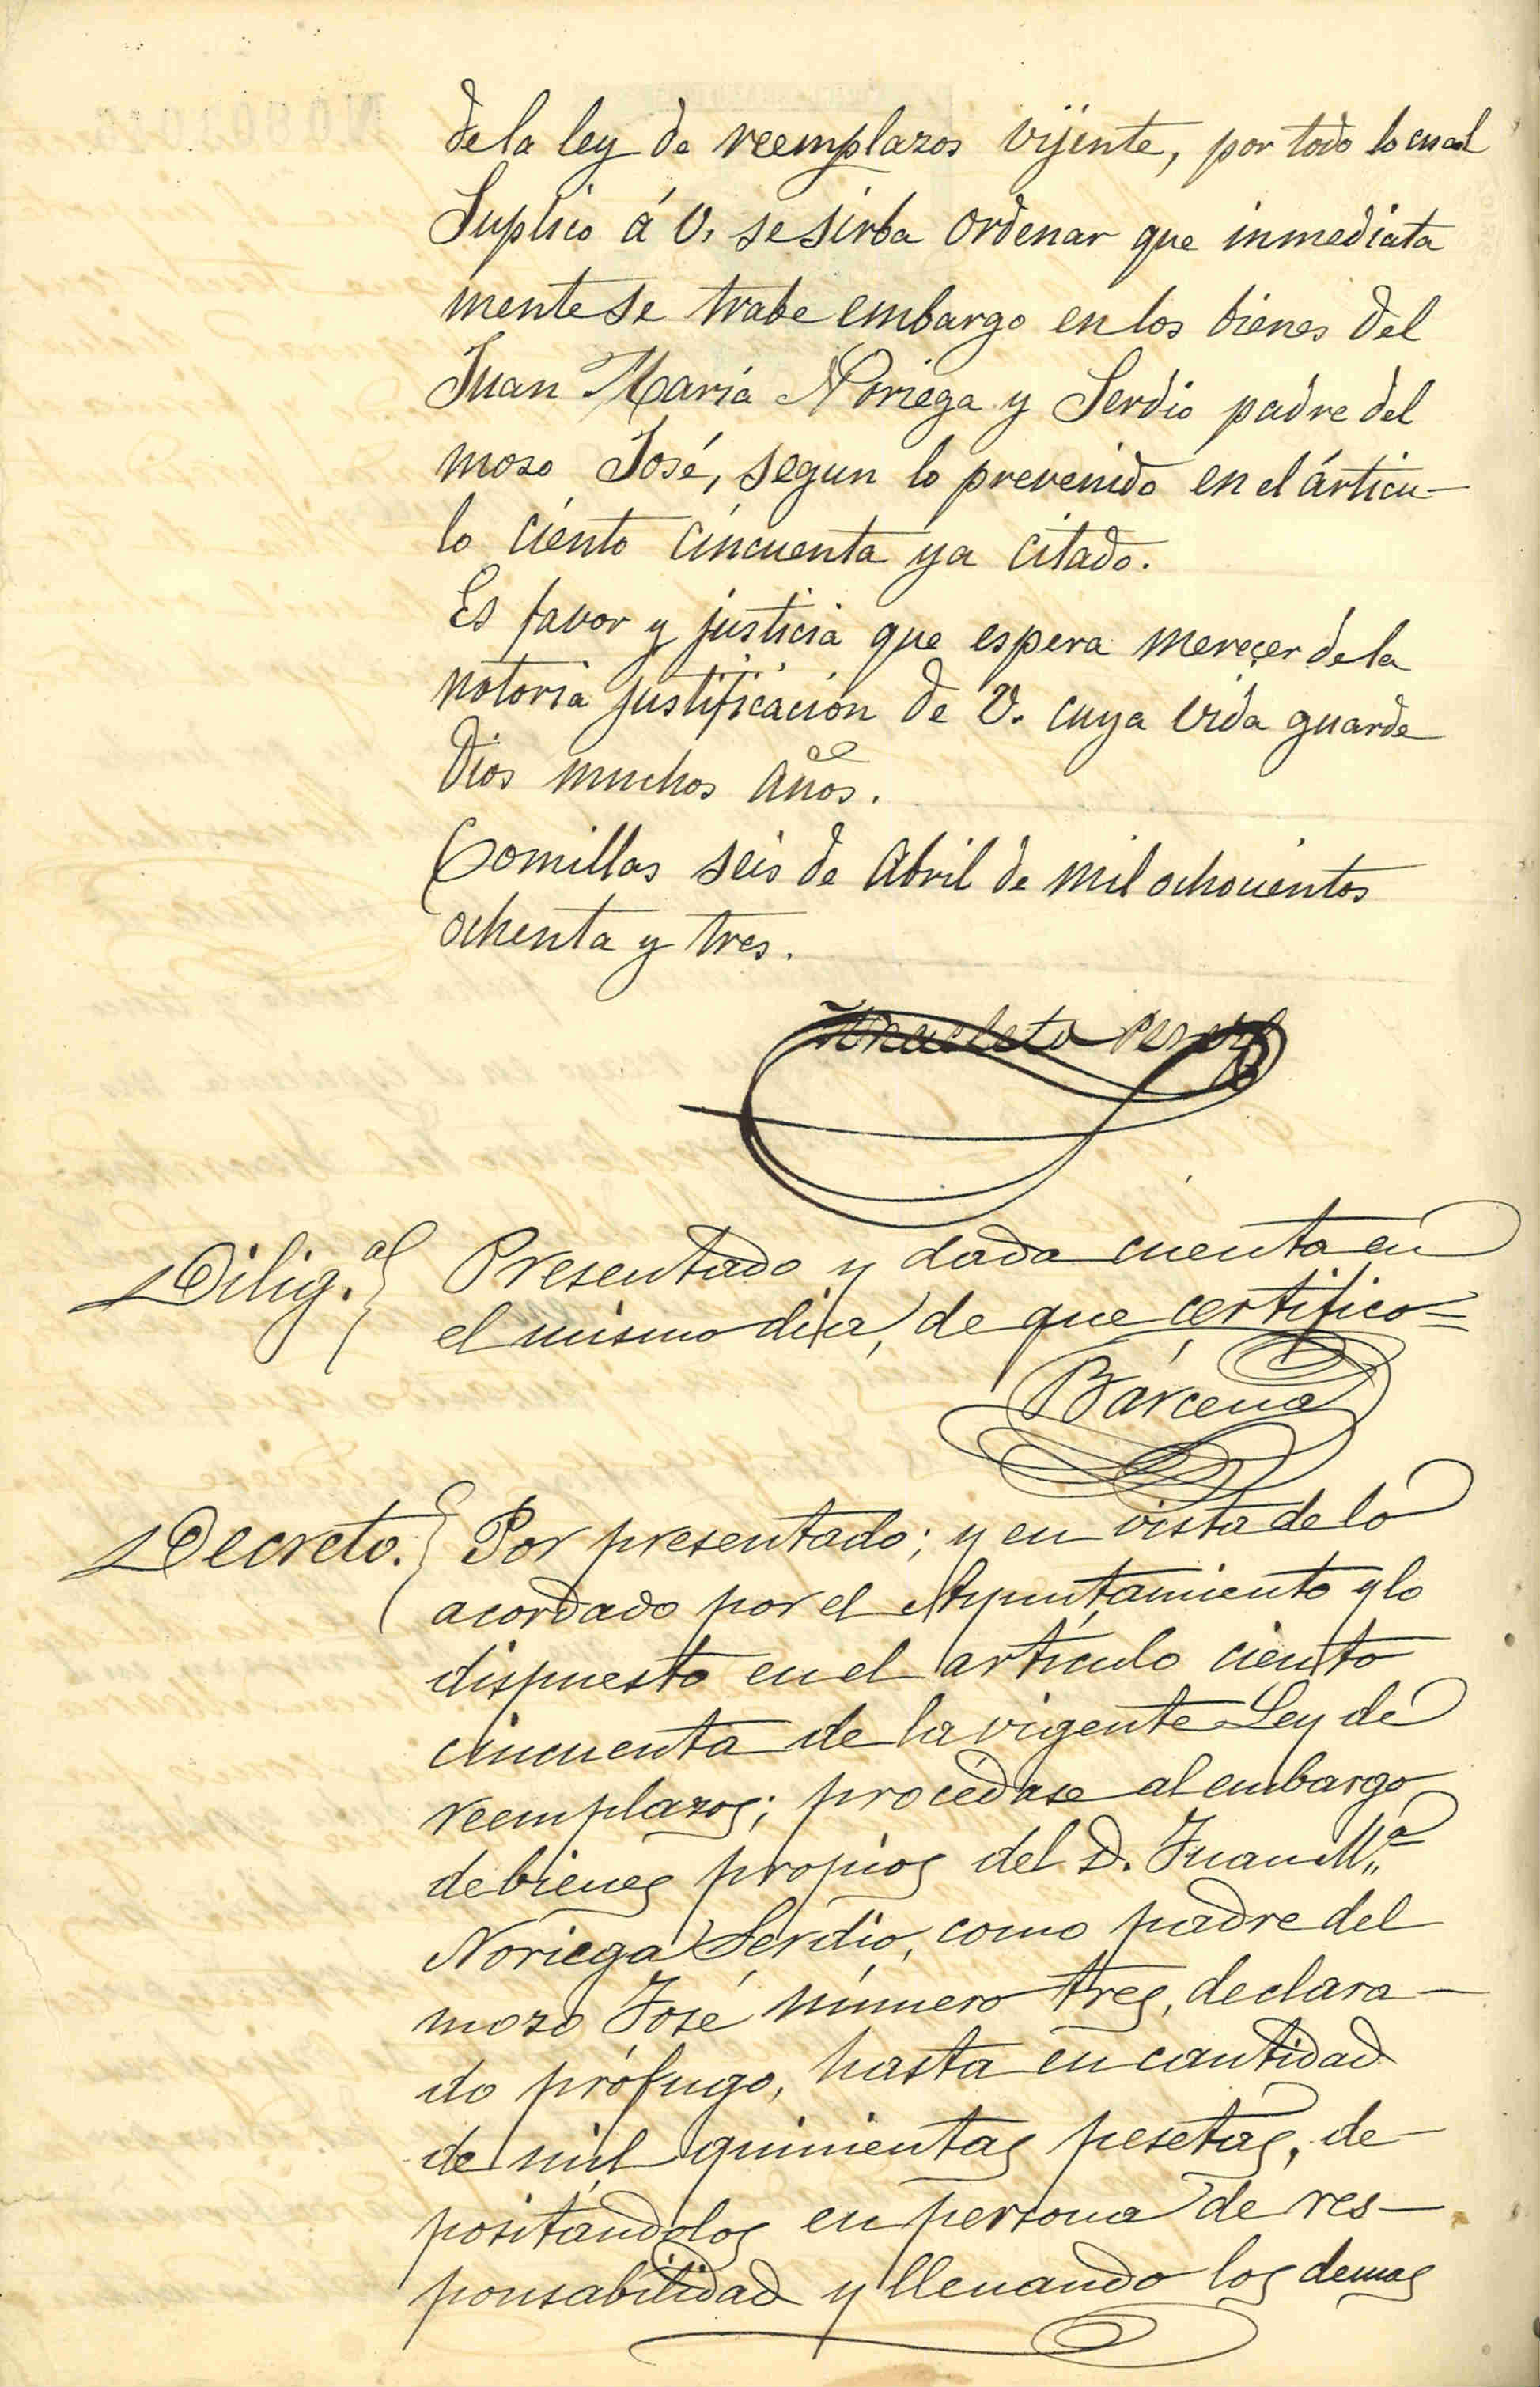 de la ley de reemplazos vijente, por todo lo cual
Suplico á V. se sirba ordenar que inmediata
mente se trabe embargo en los bienes del
Juan María Noriega y Serdio padre del
moso José, segun lo prevenido en el árticu-
lo ciento cincuenta ya citado.
Es favor y justicia que espera mereçer de la
notoria justificación de V. cuya vida guarde
Dios muchos años.
Comillas seis de Abril de mil ochocientos
ochenta y tres.
Anacleto Perez
Dilig.ª} Presentado y dada cuenta en
el mismo dia, de que certifico=
Bárcena
Decreto.} Por presentado; y en vista de lo
acordado por el Ayuntamiento y lo
dispuesto en el artículo ciento
cincuenta de la vigente Ley de
reemplazos; procédase al embargo
de bienes propios del D. Juan M.ª
Noriega Serdio, como padre del
mozo José número tres, declara-
do prófugo, hasta en cantidad
de mil quinientas pesetas, de-
positándolos en persona de res-
ponsabilidad y llenando los demas